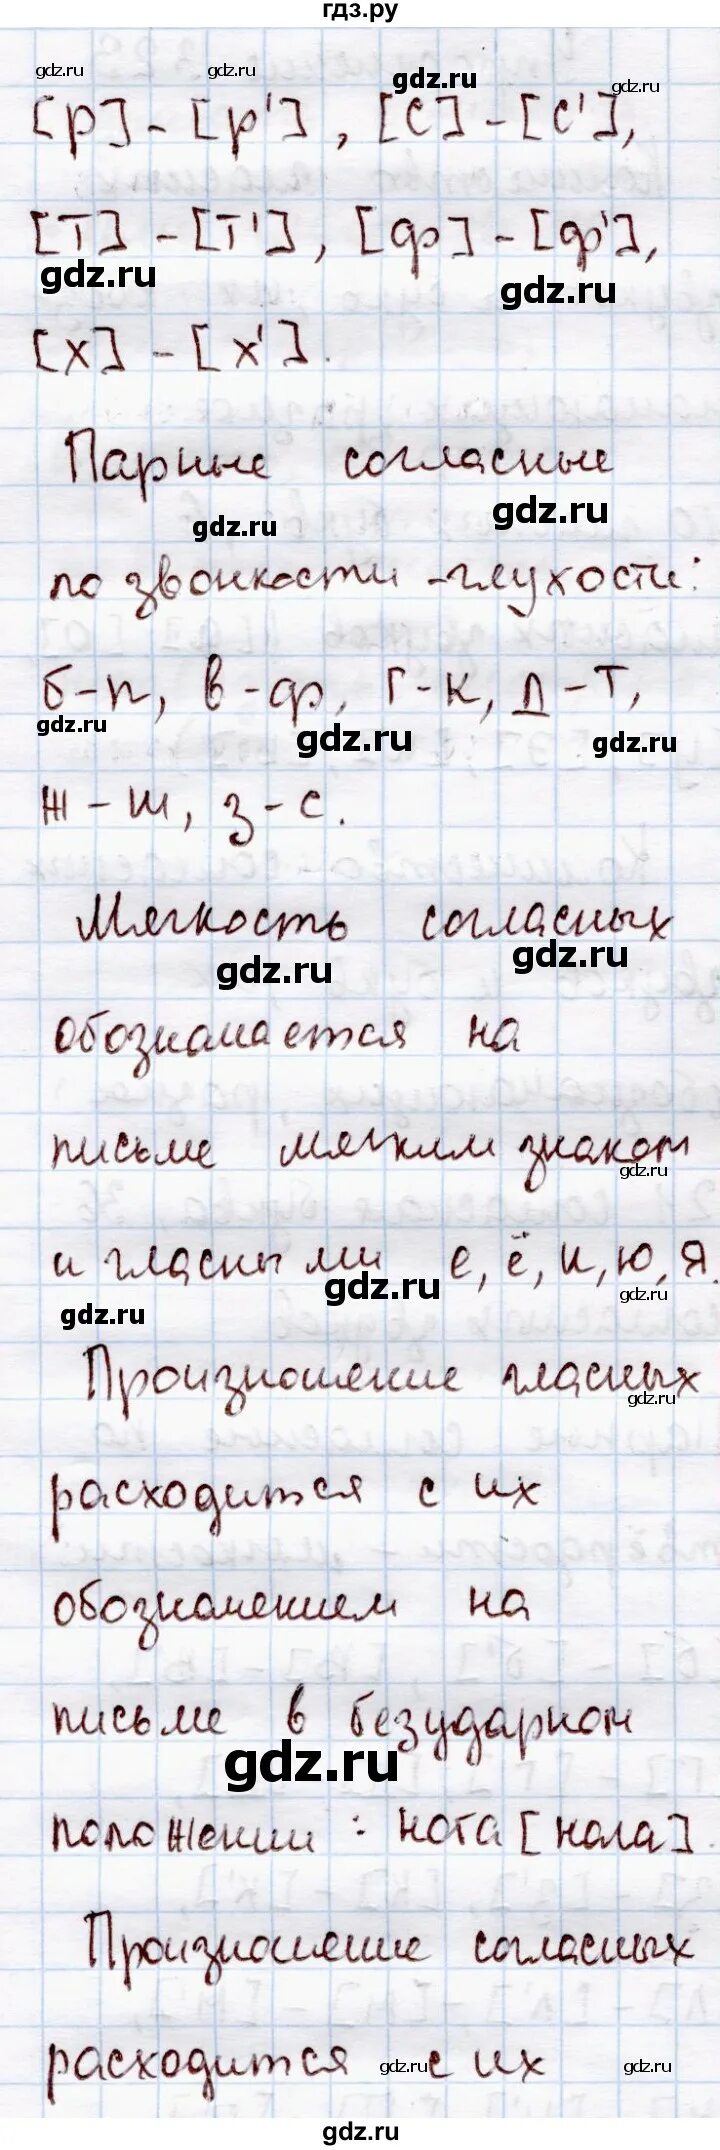 гдз.ру
gdz.ru gdz.ru gdz.ru gdz.ru
[р] - [р'], [с] - [с'],
[т] - [т'], [ф] - [ф'],
gdz.ru gdz.ru
[х] - [х'].
Парные согласные
gdz.ru gdz.ru
по звонкости - глухости:
б - п, в - ф, г - к, д - т,
gdz.ru gdz.ru gdz.ru
ж - ш, з - с.
Мягкость согласных
gdz.ru gdz.ru
обозначается на
письме мягким знаком
gdz.ru
и гласными е, ё, и, ю, я.
gdz.ru gdz.ru gdz.ru
Произношение гласных
gdz.ru
расходится с их
обозначением на
письме в безударном
gdz.ru
положении: нога [нала].
Произношение согласных
расходится с их
gdz.ru gdz.ru
gdz.ru